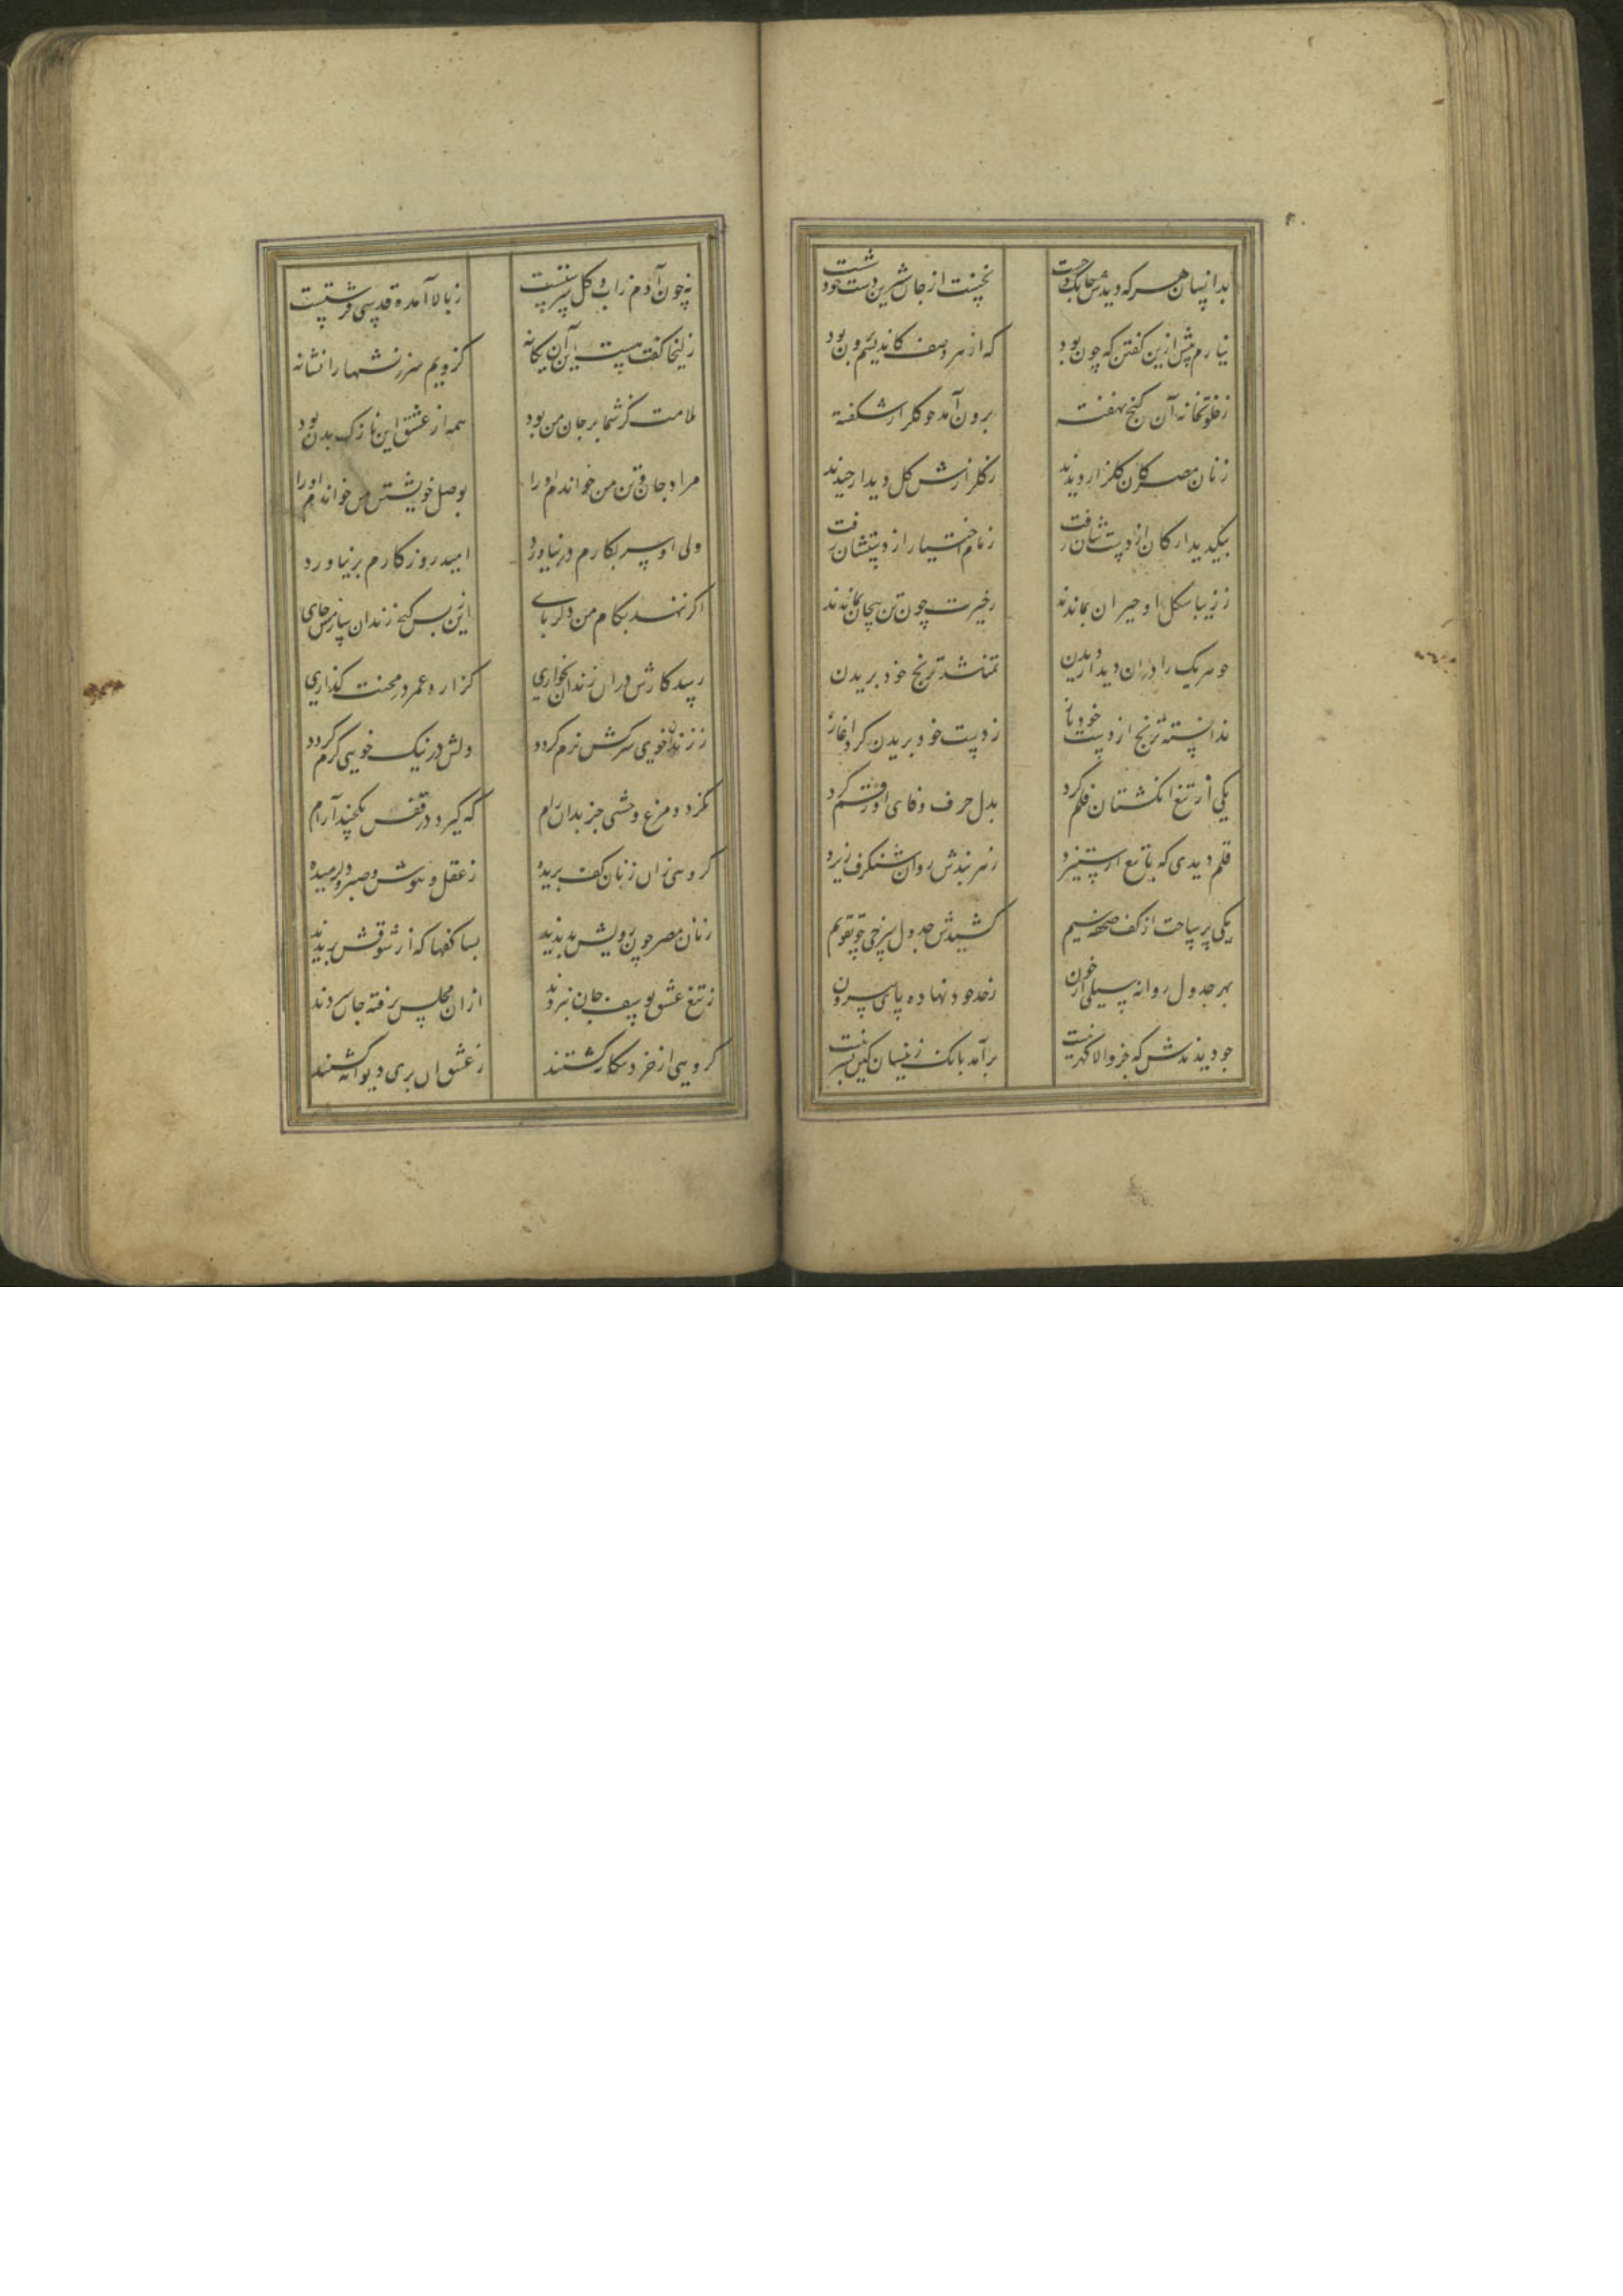 بدانسان هر که دیدش چابک و چست
نخست از جان شیرین دست خود شست
نیارم پیش ازین گفتن که چون بود
که از هر وصف کاندیشم فزون بود
ز خلوتخانه آن گنج نهفته
برون آمد چو گلزار شکفته
زنان مصر کان گلزار دیدند
ز گلزارش گل دیدار چیدند
بیک دیدار کار از دستشان رفت
زمام اختیار از دستشان رفت
ز زیبا شکل او حیران بماندند
ز حیرت چون تن بیجان بماندند
چو هر یک را در آن دیدار دیدن
تمنا شد ترنج خود بریدن
ندانسته ترنج از دست خود باز
ز دست خود بریدن کرد آغاز
یکی از تیغ انگشتان قلم کرد
بدل حرف وفای او رقم کرد
قلم دیدی که با تیغ ار ستیزد
ز هر بندش روان شنگرف ریزد
یکی پر ساخت از کف صفحه سیم
کشیدش جدول سرخی چو تقویم
بهر جدول روانه سیلی از خون
ز حد خود نهاده پای بیرون
چو دیدندش که جز والا گهر نیست
برآمد بانگ زیشان کین بشر نیست
نه چون آدم ز آب و گل سرشتست
ز بالا آمده قدسی فرشتست
زلیخا گفت هست این آن یگانه
کزویم سرزنشها را نشانه
ملامت کز شما بر جان من بود
همه از عشق این نازک بدن بود
مراد جان و تن من خواندم او را
بوصل خویشتن من خواندم او را
ولی او سر بکارم در نیاورد
امید روزگارم بر نیاورد
اگر ننهد بکام من دگر پای
ازین پس کنج زندان سازمش جای
رسد کارش در آن زندان بخواری
گزارد عمر در محنت گذاری
ز زندان خوی سرکش نرم گردد
دلش در نیک خویی گرم گردد
نگردد مرغ وحشی جز بدان رام
که گیرد در قفس یکچند آرام
گروهی زان زنان کف بریده
ز عقل و هوش و صبر و دل رمیده
زنان مصر چون رویش بدیدند
بسا کفها که از شوقش بریدند
ز تیغ عشق یوسف جان نبردند
از آن مجلس نرفته جان سپردند
گروهی از خرد بیگانه گشتند
ز عشق آن پری دیوانه گشتند